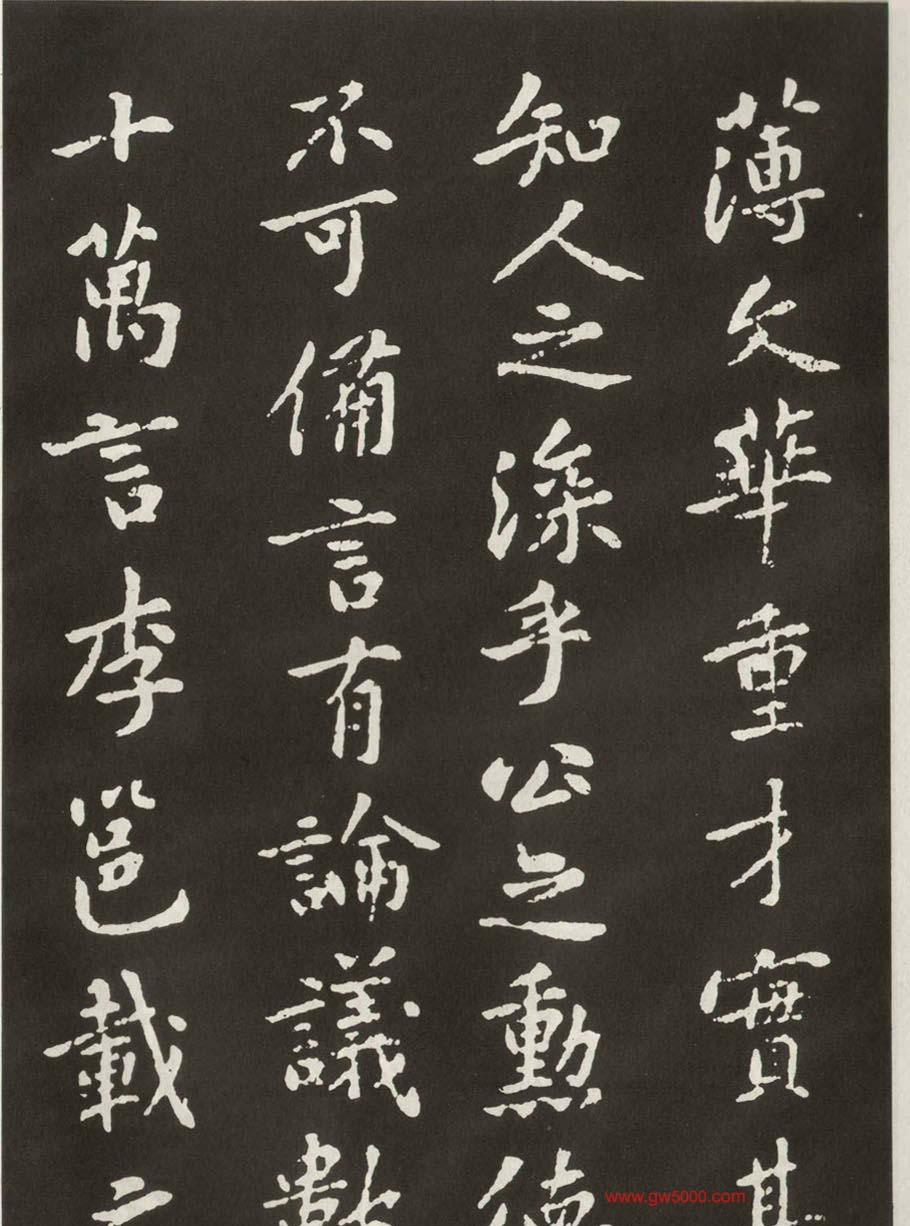 薄文華重才實其
知人之深乎公之勳德
不可備言有論議數
十萬言李邕載之
www.gw5000.com